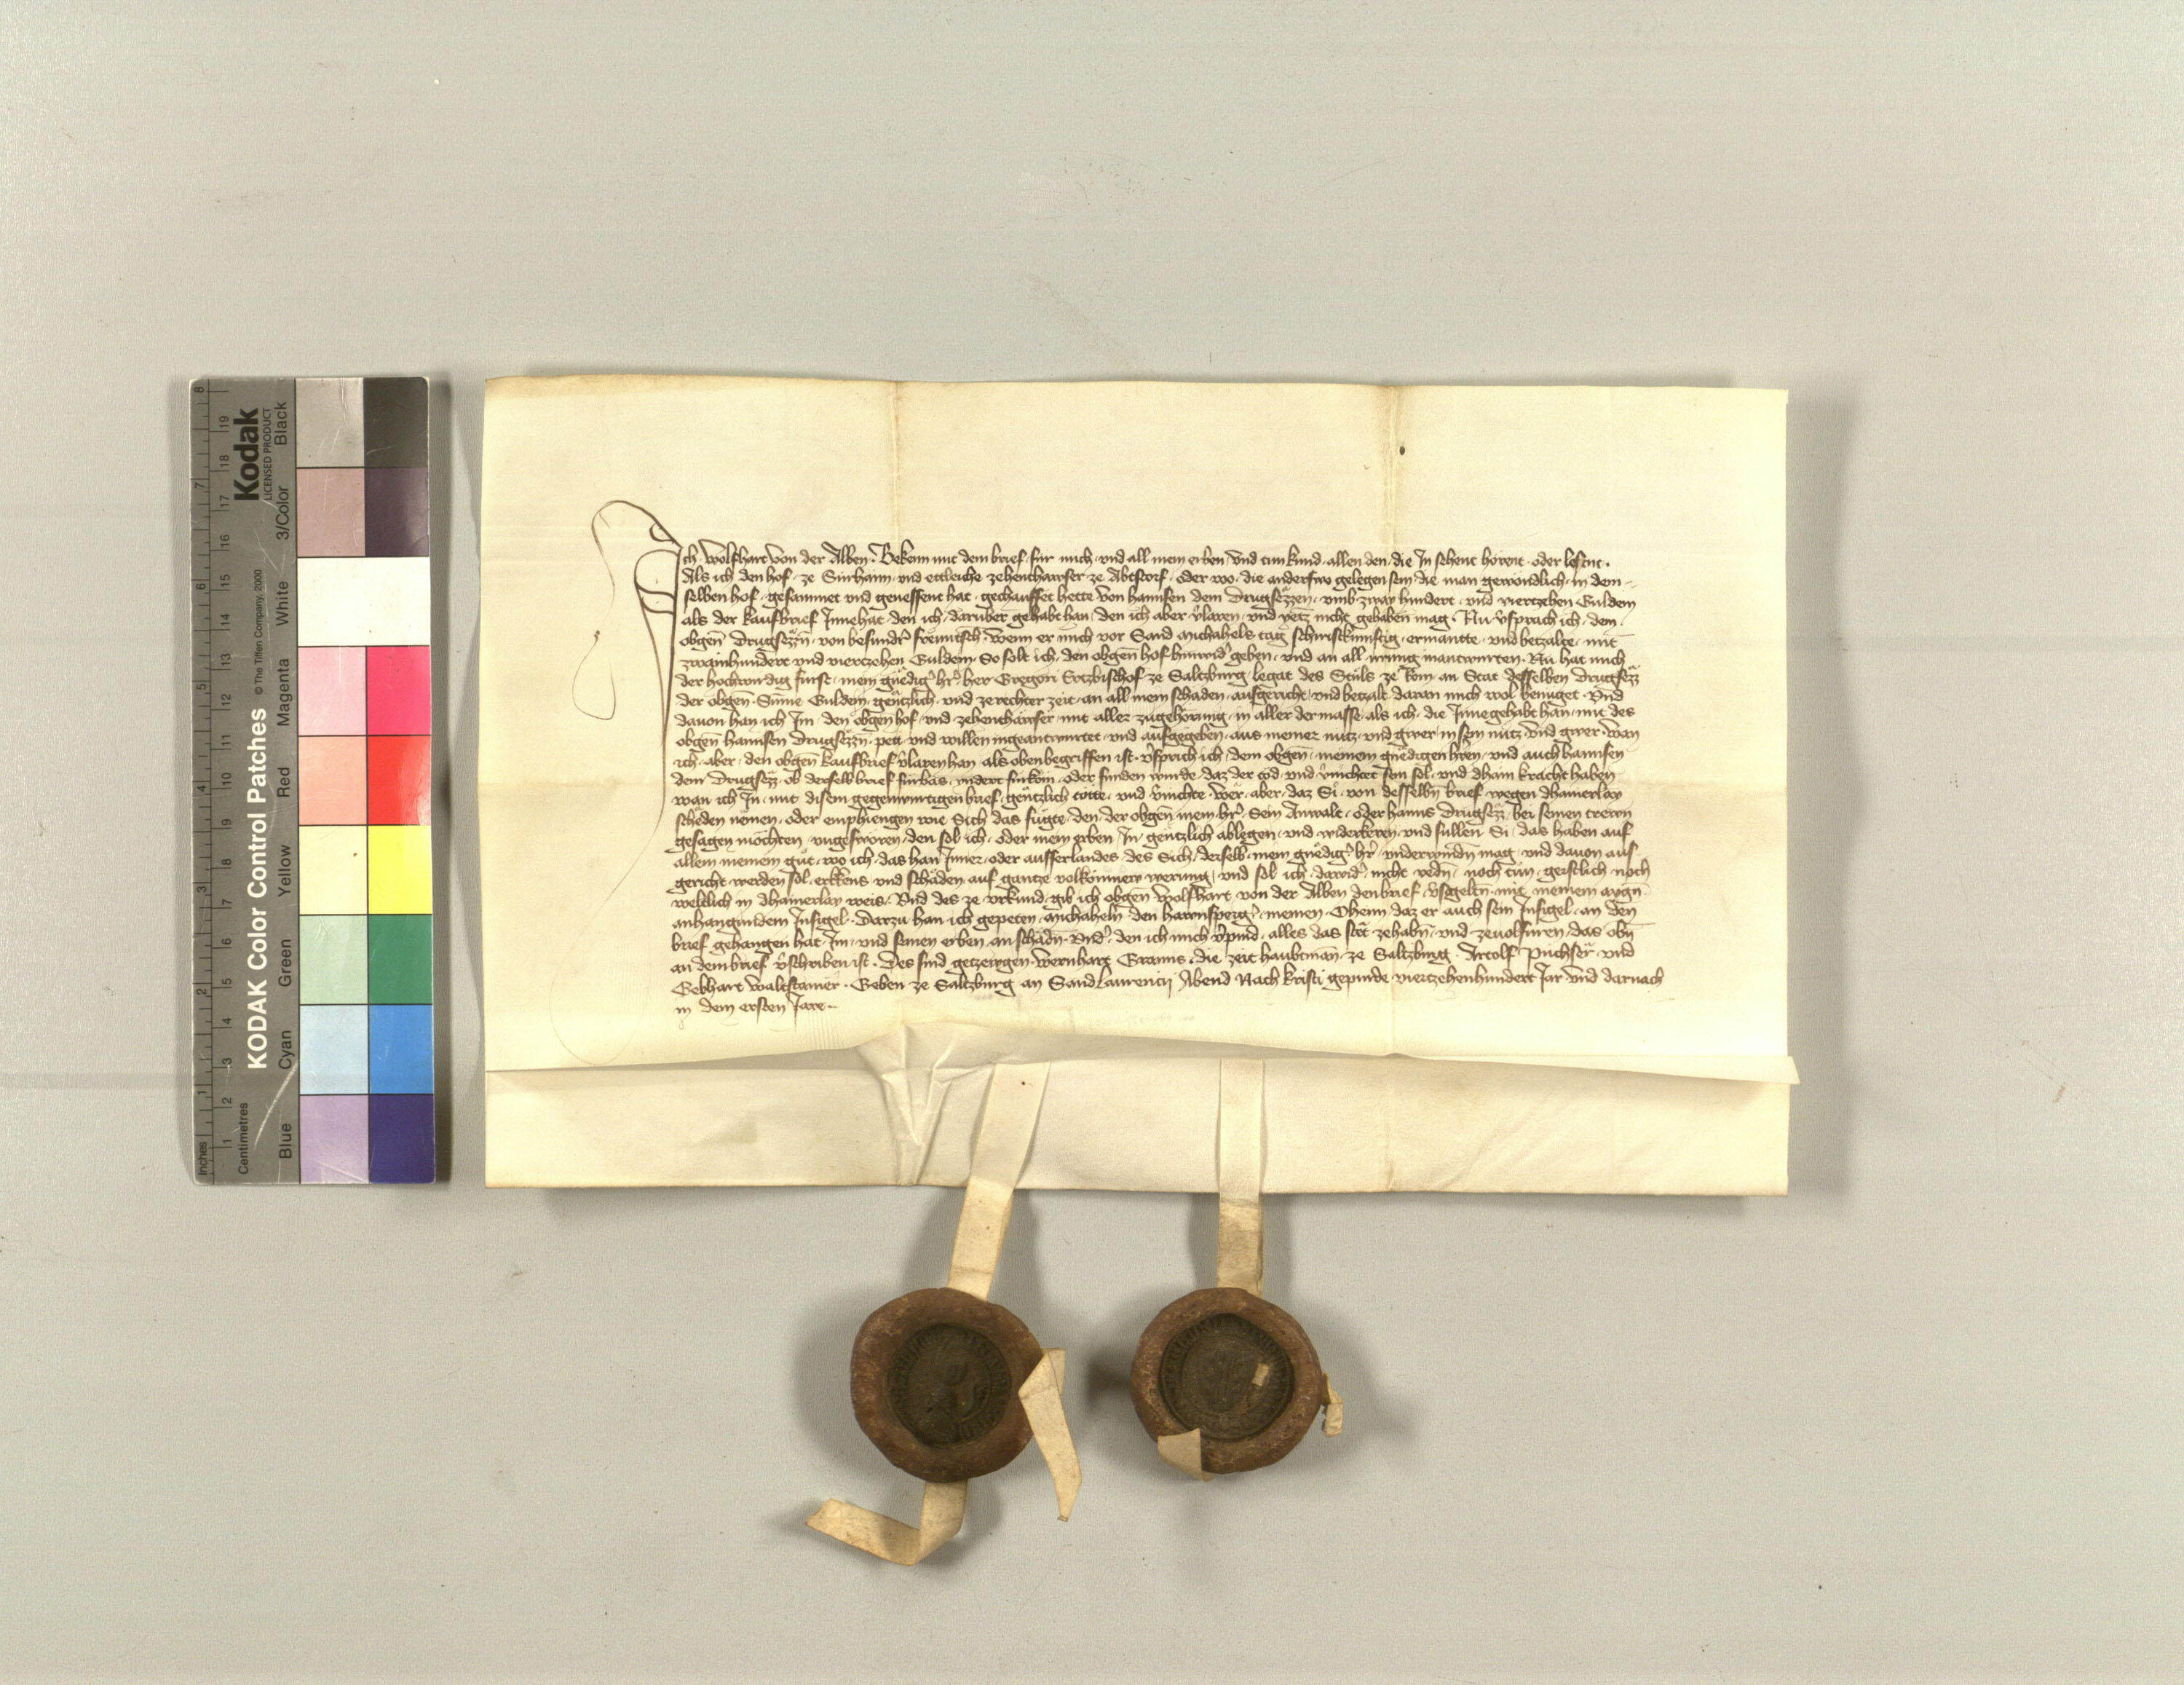 Ich Wolfhart von der Alben. Bekenn mit dem brief, für mich und all mein erben, Vnd tun kund allen den, die In sehent hörent oder lesent.
Als ich den hof ze Surhaim, vnd ettleiche zehenthawser ze Abtstorf, oder wo die anderswo gelegen sein, die man gewöndlich in dem-
selben hof, gesammet vnd genessent hat, gechauffet hette von hannsen dem Drugseczzen, vmb zway hundert vnd viertzehen Guldem
als der kaufbrief Innehat, den ich darüber gehabt han, den ich aber v̓laren, vnd yetz nicht gehaben mag. Nu v̓sprach ich dem
obgen̄ Drugsëzzn̄, von besundr̓ frewntsch, wenn er mich vor Sand Michahels tag schirstkünftig, ermantte vnd betzalte, mit
zwainhundert vnd viertzehen Guldem, So solt ich, den obgen̄ hof hinwid̓ geben, vnd an all irrung inantwurten. Nu hat mich
der hochwirdig fürst, mein gnëdig̓ hr̓, her Gregori Ertzbischof ze Saltzburg legat des Stůls ze Rom, an Stat desselben Drugsëzz
der obgen̄ Sum̄e Guldem, gëntzlich, vnd ze rechter zeit, an all mein schaden, ausgericht vnd betzalt, daran mich wol benüget. Vnd
dauon han ich Im den obgen̄ hof vnd zehenthäwser, mit aller zugehörung, in aller der masse, als ich die Innegehabt han, mit des
obgen̄ hannsen Drugsëzzn̄, pett vnd willen ingeantwurtet vnd aufgegeben, aus meiner nutz vnd gwer, in sein nutz vnd gwer. Wan
ich aber, den obgen̄ kaufbrief v̓laren han, als oben begriffen ist, v̓sprich ich, dem obgen̄ meinem gnëdigen hr̄en, vnd auch hannsen
dem Drugsëzz, ob derselb brief fürbas, yndert fürköm, oder funden wurde, daz der tod vnd v̓nichtet sein sol, vnd dhain kracht haben
wan ich In, mit disem gegenwurtigen brief, gëntzlich tötte vnd v̓nichte. Wër aber, daz Si, von desselbn̄ brief wegen dhainerlay
schëden nëmen, oder emphiengen wie Sich das fügte, den der obgen̄ mein hr̓, Sein Anwalt, oder hanns Drugsëzz, bei seinen trewn
gesagen möchten, vngesworen, den sol ich, oder mein erben, In gëntzlich ablegen, vnd widerkeren, vnd sullen Si, das haben auf
allem meinem gůt, wo ich das han Inner oder ausserlandes, des Sich, derselb mein gnëdig̓ hr̓, vnderwindn̄ mag, vnd dauon aus
gericht werden sol, erkkens vnd schäden, auf gantze volkömmen werung, vnd sol ich dawid̓, nicht redn̄, noch tůn, geistlich noch
weltlich in dhainerlay weis. Vnd des ze vrkund, gib ich obgen̄ Wolfhart von der Alben den brief, v̓sigelten mit meinem aygn̄
anhangundem Insigel. Darzu han ich gepeten Michaheln den hawnsperg̓, meinen Oheim, daz er auch sein Insigel an den
brief gehangen hat, Im vnd seinen erben an schädn̄. Vnd̓ den ich mich v̓pind, alles das stët zehabn̄, vnd zeuolfüren, das obn̄
an dem brief v̓schriben ist. Des sind getzewgen Wernhart Grans, die zeit haubtman̄ ze Saltzburg. Artolf Püchser vnd
Gebhart Waltstainer. Geben ze Saltzburg an Sand Laurencij Abend Nach Kristi gepurde viertzehenhundert Jar vnd darnach
in dem ersten Jare.
KODAK Color Control Patches © The Tiffen Company, 2000
Kodak
LICENSED PRODUCT
Inches 1 2 3 4 5 6 7 8
Centimetres 1 2 3 4 5 6 7 8 9 10 11 12 13 14 15 16 17 18 19
Blue Cyan Green Yellow Red Magenta White 3/Color Black